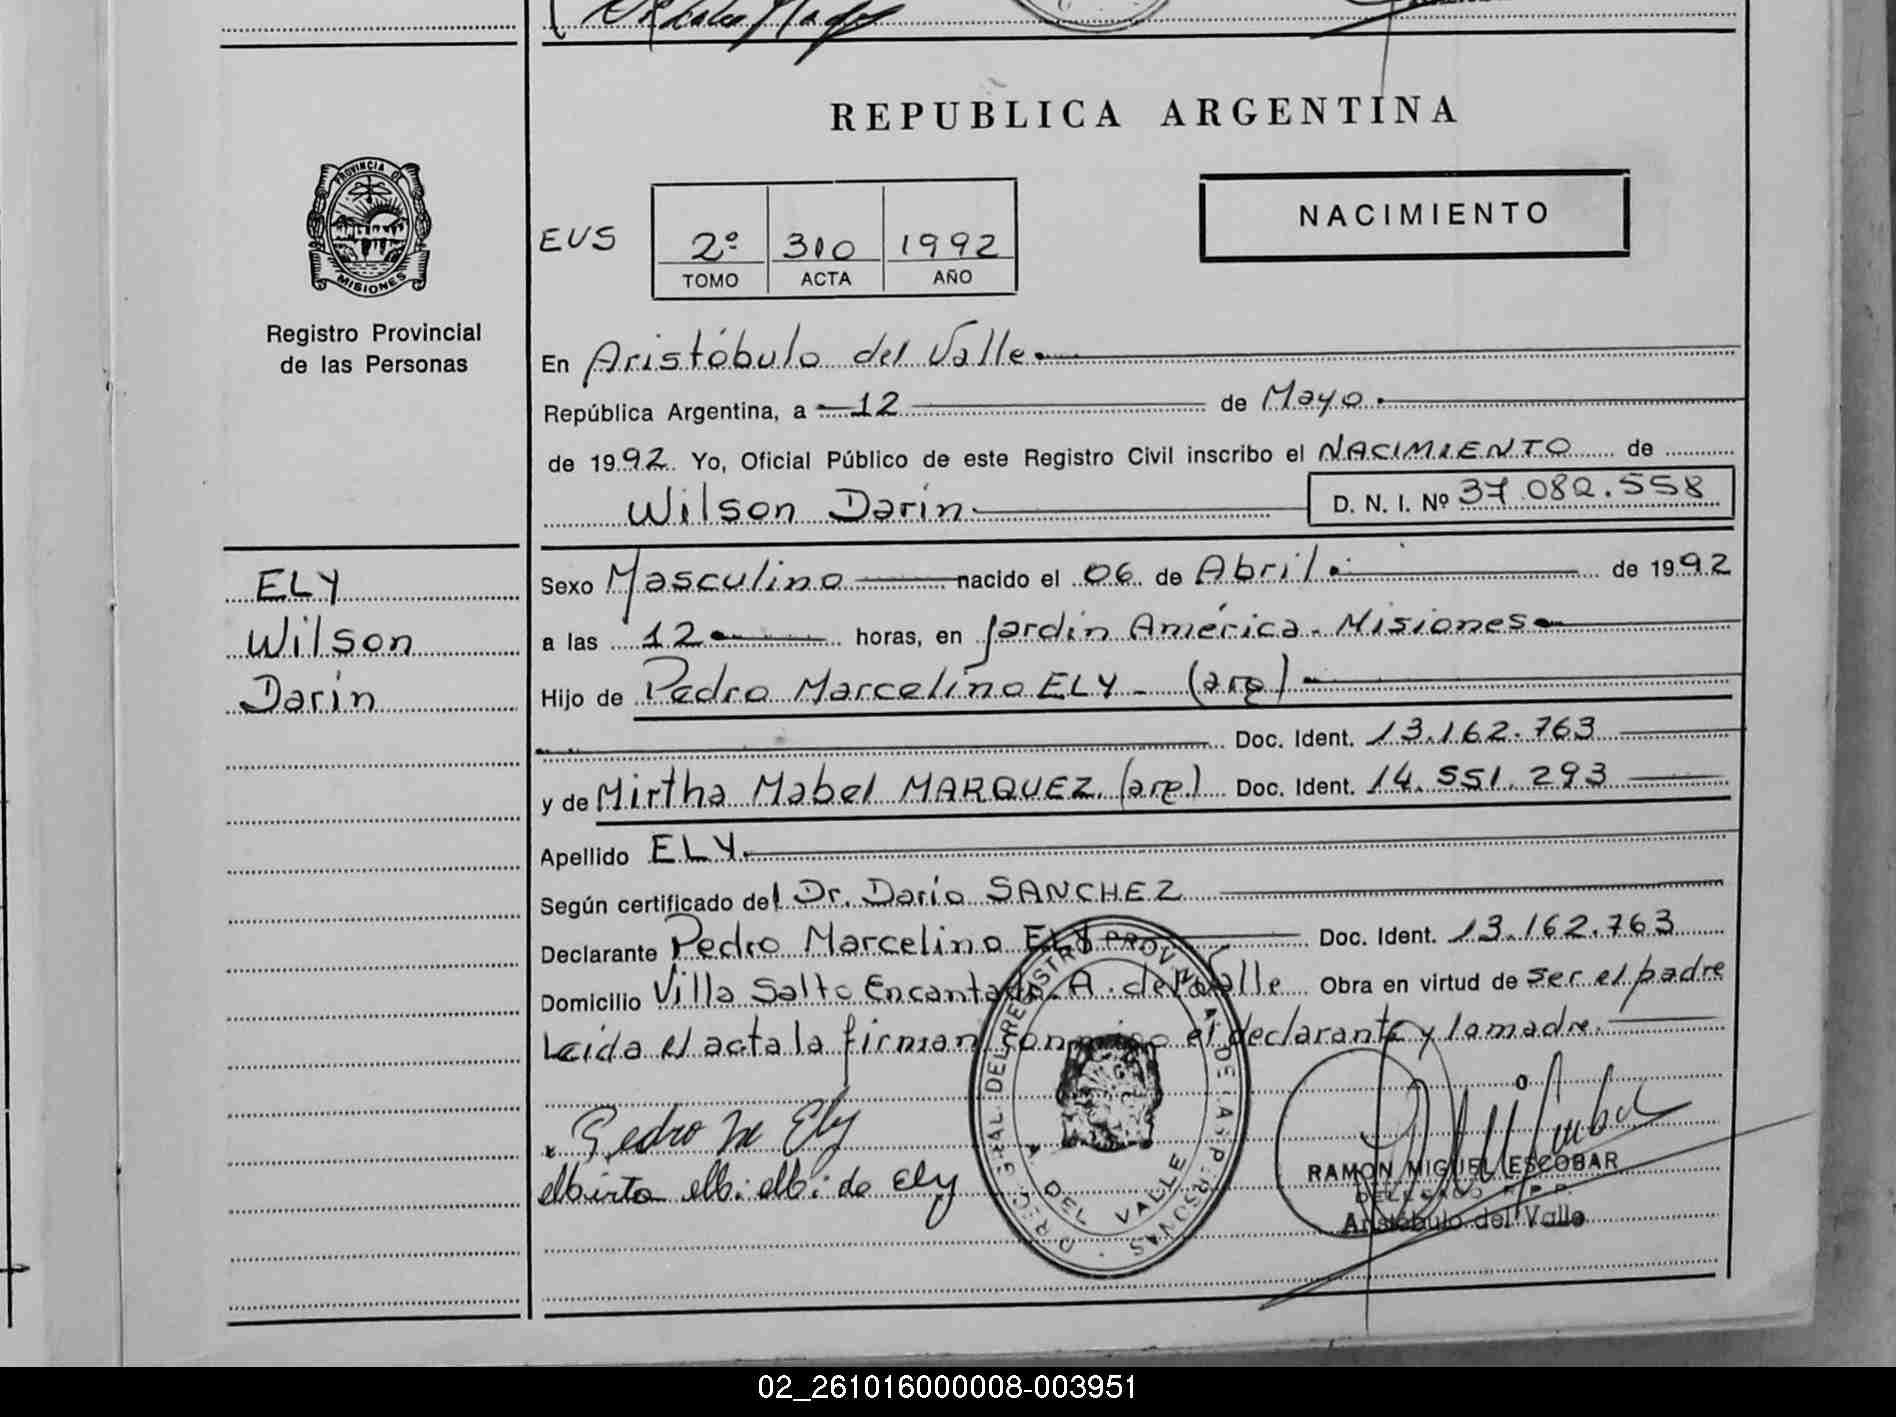 REPUBLICA ARGENTINA
PROVINCIA DE MISIONES
Registro Provincial
de las Personas
EUS
2º 310 1992
TOMO ACTA AÑO
NACIMIENTO
En Aristóbulo del Valle
República Argentina, a 12 de Mayo
de 1992. Yo, Oficial Público de este Registro Civil inscribo el NACIMIENTO de
Wilson Darin D. N. I. Nº 37.082.558
ELY
Wilson
Darin
Sexo Masculino nacido el 06 de Abril de 1992
a las 12 horas, en Jardín América. Misiones
Hijo de Pedro Marcelino ELY - (arg)
Doc. Ident. 13.162.763
y de Mirtha Mabel MARQUEZ. (arg.) Doc. Ident. 14.551.293
Apellido ELY.
Según certificado del Dr. Dario SANCHEZ
Declarante Pedro Marcelino ELY Doc. Ident. 13.162.763
Domicilio Villa Salto Encantado. A. del Valle Obra en virtud de ser el padre
Leida el acta la firman conmigo el declarante y la madre.
Pedro M Ely
de Ely
DIREC. GRAL. DEL REGISTRO PROVINCIAL DE LAS PERSONAS
A. DEL VALLE
RAMON MIGUEL ESCOBAR
DELEGADO R.P.P.
Aristóbulo del Valle
02_261016000008-003951